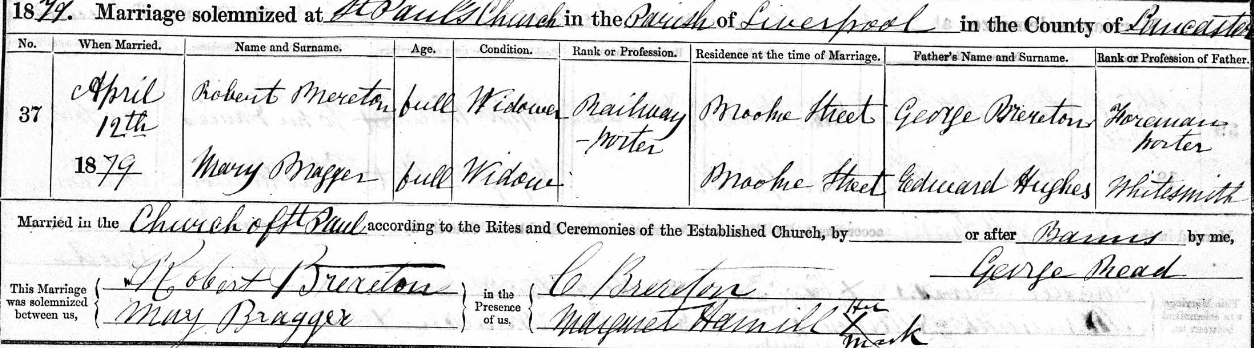 1879. Marriage solemnized at St Paul's Church in the Parish of Liverpool in the County of Lancaster
No. When Married. Name and Surname. Age. Condition. Rank or Profession. Residence at the time of Marriage. Father's Name and Surname. Rank or Profession of Father.
37 April 12th Robert Brereton full Widower Railway Porter Brooke Street George Brereton Foreman Porter
1879 Mary Bragger full Widow Brooke Street Edward Hughes Whitesmith
Married in the Church of St Paul according to the Rites and Ceremonies of the Established Church, by or after Banns by me,
George Read
This Marriage was solemnized between us, Robert Brereton in the Presence of us, C Brereton
Mary Bragger Margaret Hamill Her X Mark